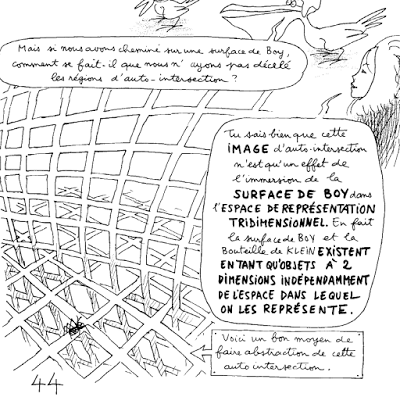 Mais si nous avons cheminé sur une surface de Boy,
comment se fait-il que nous n'ayons pas décelé
les régions d'auto-intersection ?
Tu sais bien que cette
IMAGE d'auto-intersection
n'est qu'un effet de
l'immersion de la
SURFACE DE BOY dans
l'ESPACE DE REPRÉSENTATION
TRIDIMENSIONNEL. En fait
la surface de BOY et la
Bouteille de KLEIN EXISTENT
EN TANT QU'OBJETS À 2
DIMENSIONS INDÉPENDAMMENT
DE L'ESPACE DANS LEQUEL
ON LES REPRÉSENTE.
Voici un bon moyen de
faire abstraction de cette
auto intersection.
44